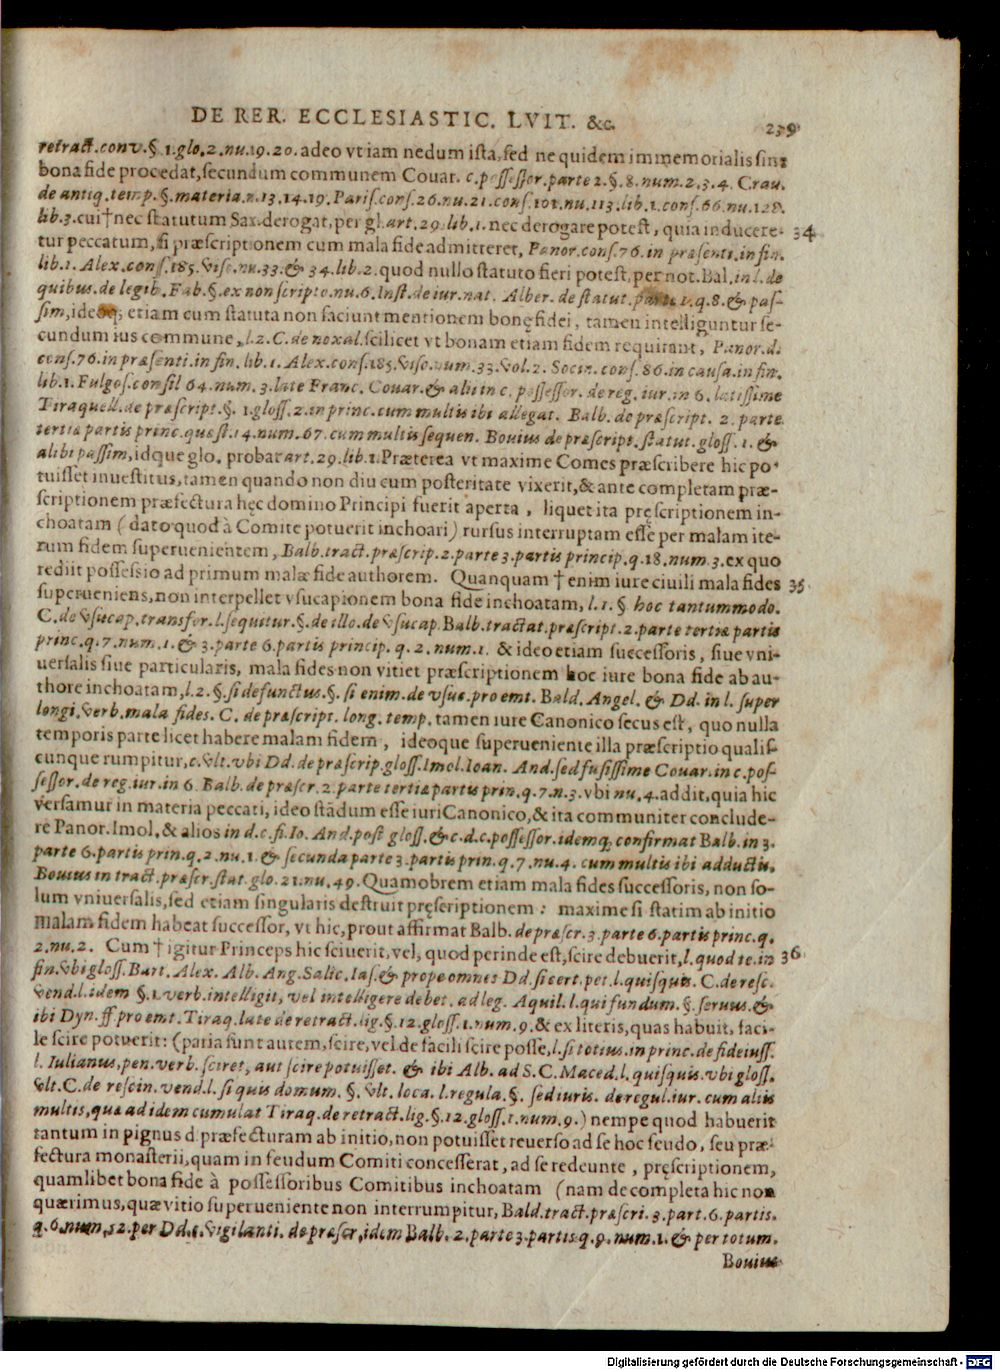 DE RER. ECCLESIASTIC. LVIT. &c. 239
retract. conv. §. 1. glo. 2. nu. 19. 20. adeo vt iam nedum ista, sed ne quidem immemorialis sine
bona fide procedat, secundum communem Couar. c. possessor. parte 2. §. 8. num. 2. 3. 4. Crau.
de antiq. temp. §. materia. n. 13. 14. 19. Paris. cons. 26. nu. 21. cons. 101. nu. 113. lib. 1. cons. 66. nu. 128.
lib. 3. cui † nec statutum Sax. derogat, per gl. art. 29. lib. 1. nec derogare potest, quia induceretur 34
tur peccatum, si præscriptionem cum mala fide admitteret, Panor. cons. 76. in præsenti. in fin.
lib. 1. Alex. cons. 185. Viso. nu. 33. & 34. lib. 2. quod nullo statuto fieri potest, per not. Bal. in l. de
quibus. de legib. Fab. §. ex non scripto. nu. 6. Inst. de iur. nat. Alber. de statut. parte 1. q. 8. & pas-
sim, ideoq; etiam cum statuta non faciunt mentionem bonę fidei, tamen intelliguntur se-
cundum ius commune, l. 2. C. de noxal. scilicet vt bonam etiam fidem requirant, Panor. d.
cons. 76. in præsenti. in fin. lib. 1. Alex. cons. 185. Viso. num. 33. Vol. 2. Socin. cons. 86. in causa. in fin.
lib. 1. Fulgos. consil 64. num. 3. late Franc. Couar. & alii in c. possessor. de reg. iur. in 6. latissime
Tiraquell. de præscript. §. 1. gloss. 2. in princ. cum multis ibi allegat. Balb. de præscript. 2. parte
tertiæ partis princ. quæst. 14. num. 67. cum multis sequen. Bouius de præscript. statut. gloss. 1. &
alibi passim, idque glo. probat art. 29. lib. 1. Præterea vt maxime Comes præscribere hic po-
tuisset inuestitus, tamen quando non diu cum posteritate vixerit, & ante completam præ-
scriptionem præfectura hęc domino Principi fuerit aperta, liquet ita pręscriptionem in-
choatam (dato quod à Comite potuerit inchoari) rursus interruptam esse per malam ite-
rum fidem superuenientem, Balb. tract. præscrip. 2. parte 3. partis princip. q. 18. num. 3. ex quo
rediit possessio ad primum malæ fide authorem. Quanquam † enim iure ciuili mala fides 35
superueniens, non interpellet vsucapionem bona fide inchoatam, l. 1. §. hoc tantummodo.
C. de Vsucap. transfor. l. sequitur. §. de illo. de Vsucap. Balb. tractat. præscript. 2. parte tertiæ partis
princ. q. 7. num. 1. & 3. parte 6. partis princip. q. 2. num. 1. & ideo etiam successoris, siue vni-
uersalis siue particularis, mala fides non vitiet præscriptionem hoc iure bona fide ab au-
thore inchoatam, l. 2. §. si defunctus. §. si enim. de vsuc. pro emt. Bald. Angel. & Dd. in l. super
longi. Verb. mala fides. C. de præscript. long. temp. tamen iure Canonico secus est, quo nulla
temporis parte licet habere malam fidem, ideoque superueniente illa præscriptio qualis-
cunque rumpitur, c. Vlt. vbi Dd. de præscrip. gloss. Imol. Ioan. And. sed fusissime Couar. in c. pos-
sessor. de reg. iur. in 6. Balb. de præscr. 2. parte tertiæ partis prin. q. 7. n. 3. vbi nu. 4. addit, quia hic
versamur in materia peccati, ideo stādum esse iuri Canonico, & ita communiter conclude-
re Panor. Imol. & alios in d. c. fi. Io. And. post gloss. & c. d. c. possessor. idemq; confirmat Balb. in 3.
parte 6. partis prin. q. 2. nu. 1. & secunda parte 3. partis prin. q. 7. nu. 4. cum multis ibi adductis.
Bouius in tract. præscr. stat. glo. 21. nu. 49. Quamobrem etiam mala fides successoris, non so-
lum vniuersalis, sed etiam singularis destruit pręscriptionem: maxime si statim ab initio
malam fidem habeat successor, vt hic, prout affirmat Balb. de præscr. 3. parte 6. partis princ. q.
2. nu. 2. Cum † igitur Princeps hic sciuerit, vel, quod perinde est, scire debuerit, l. quod te. in 36
fin. Vbi gloss. Bart. Alex. Alb. Ang. Salic. Ias. & prope omnes Dd. si cert. pet. l. quisquis. C. de resc.
Vend. l. idem §. 1. verb. intelligit, vel intelligere debet. ad leg. Aquil. l. qui fundum. §. seruus. &
ibi Dyn. ff. pro emt. Tiraq. late de retract. lig. §. 12. gloss. 1. num. 9. & ex literis, quas habuit, faci-
le scire potuerit: (paria sunt autem, scire, vel de facili scire posse, l. si totius. in princ. de fideiuss.
l. Iulianus, pen. verb. sciret, aut scire potuisset. & ibi Alb. ad S. C. Maced. l. quisquis. vbi gloss.
Vlt. C. de rescin. vend. l. si quis domum. §. Vlt. loca. l. regula. §. sed iuris. de regul. iur. cum aliis
multis, quæ ad idem cumulat Tiraq. de retract. lig. §. 12. gloss. 1. num. 9.) nempe quod habuerit
tantum in pignus d. præfecturam ab initio, non potuisset reuerso ad se hoc feudo, seu præ-
fectura monasterii, quam in feudum Comiti concesserat, ad se redeunte, pręscriptionem,
quamlibet bona fide à possessoribus Comitibus inchoatam (nam de completa hic non
quærimus, quæ vitio superueniente non interrumpitur, Balb. tract. præscri. 3. part. 6. partis.
q. 6. num. 12. per Dd. c. Vigilanti. de præscr, idem Balb. 2. parte 3. partis q. 9. num. 1. & per totum.
Bouius
Digitalisierung gefördert durch die Deutsche Forschungsgemeinschaft - DFG